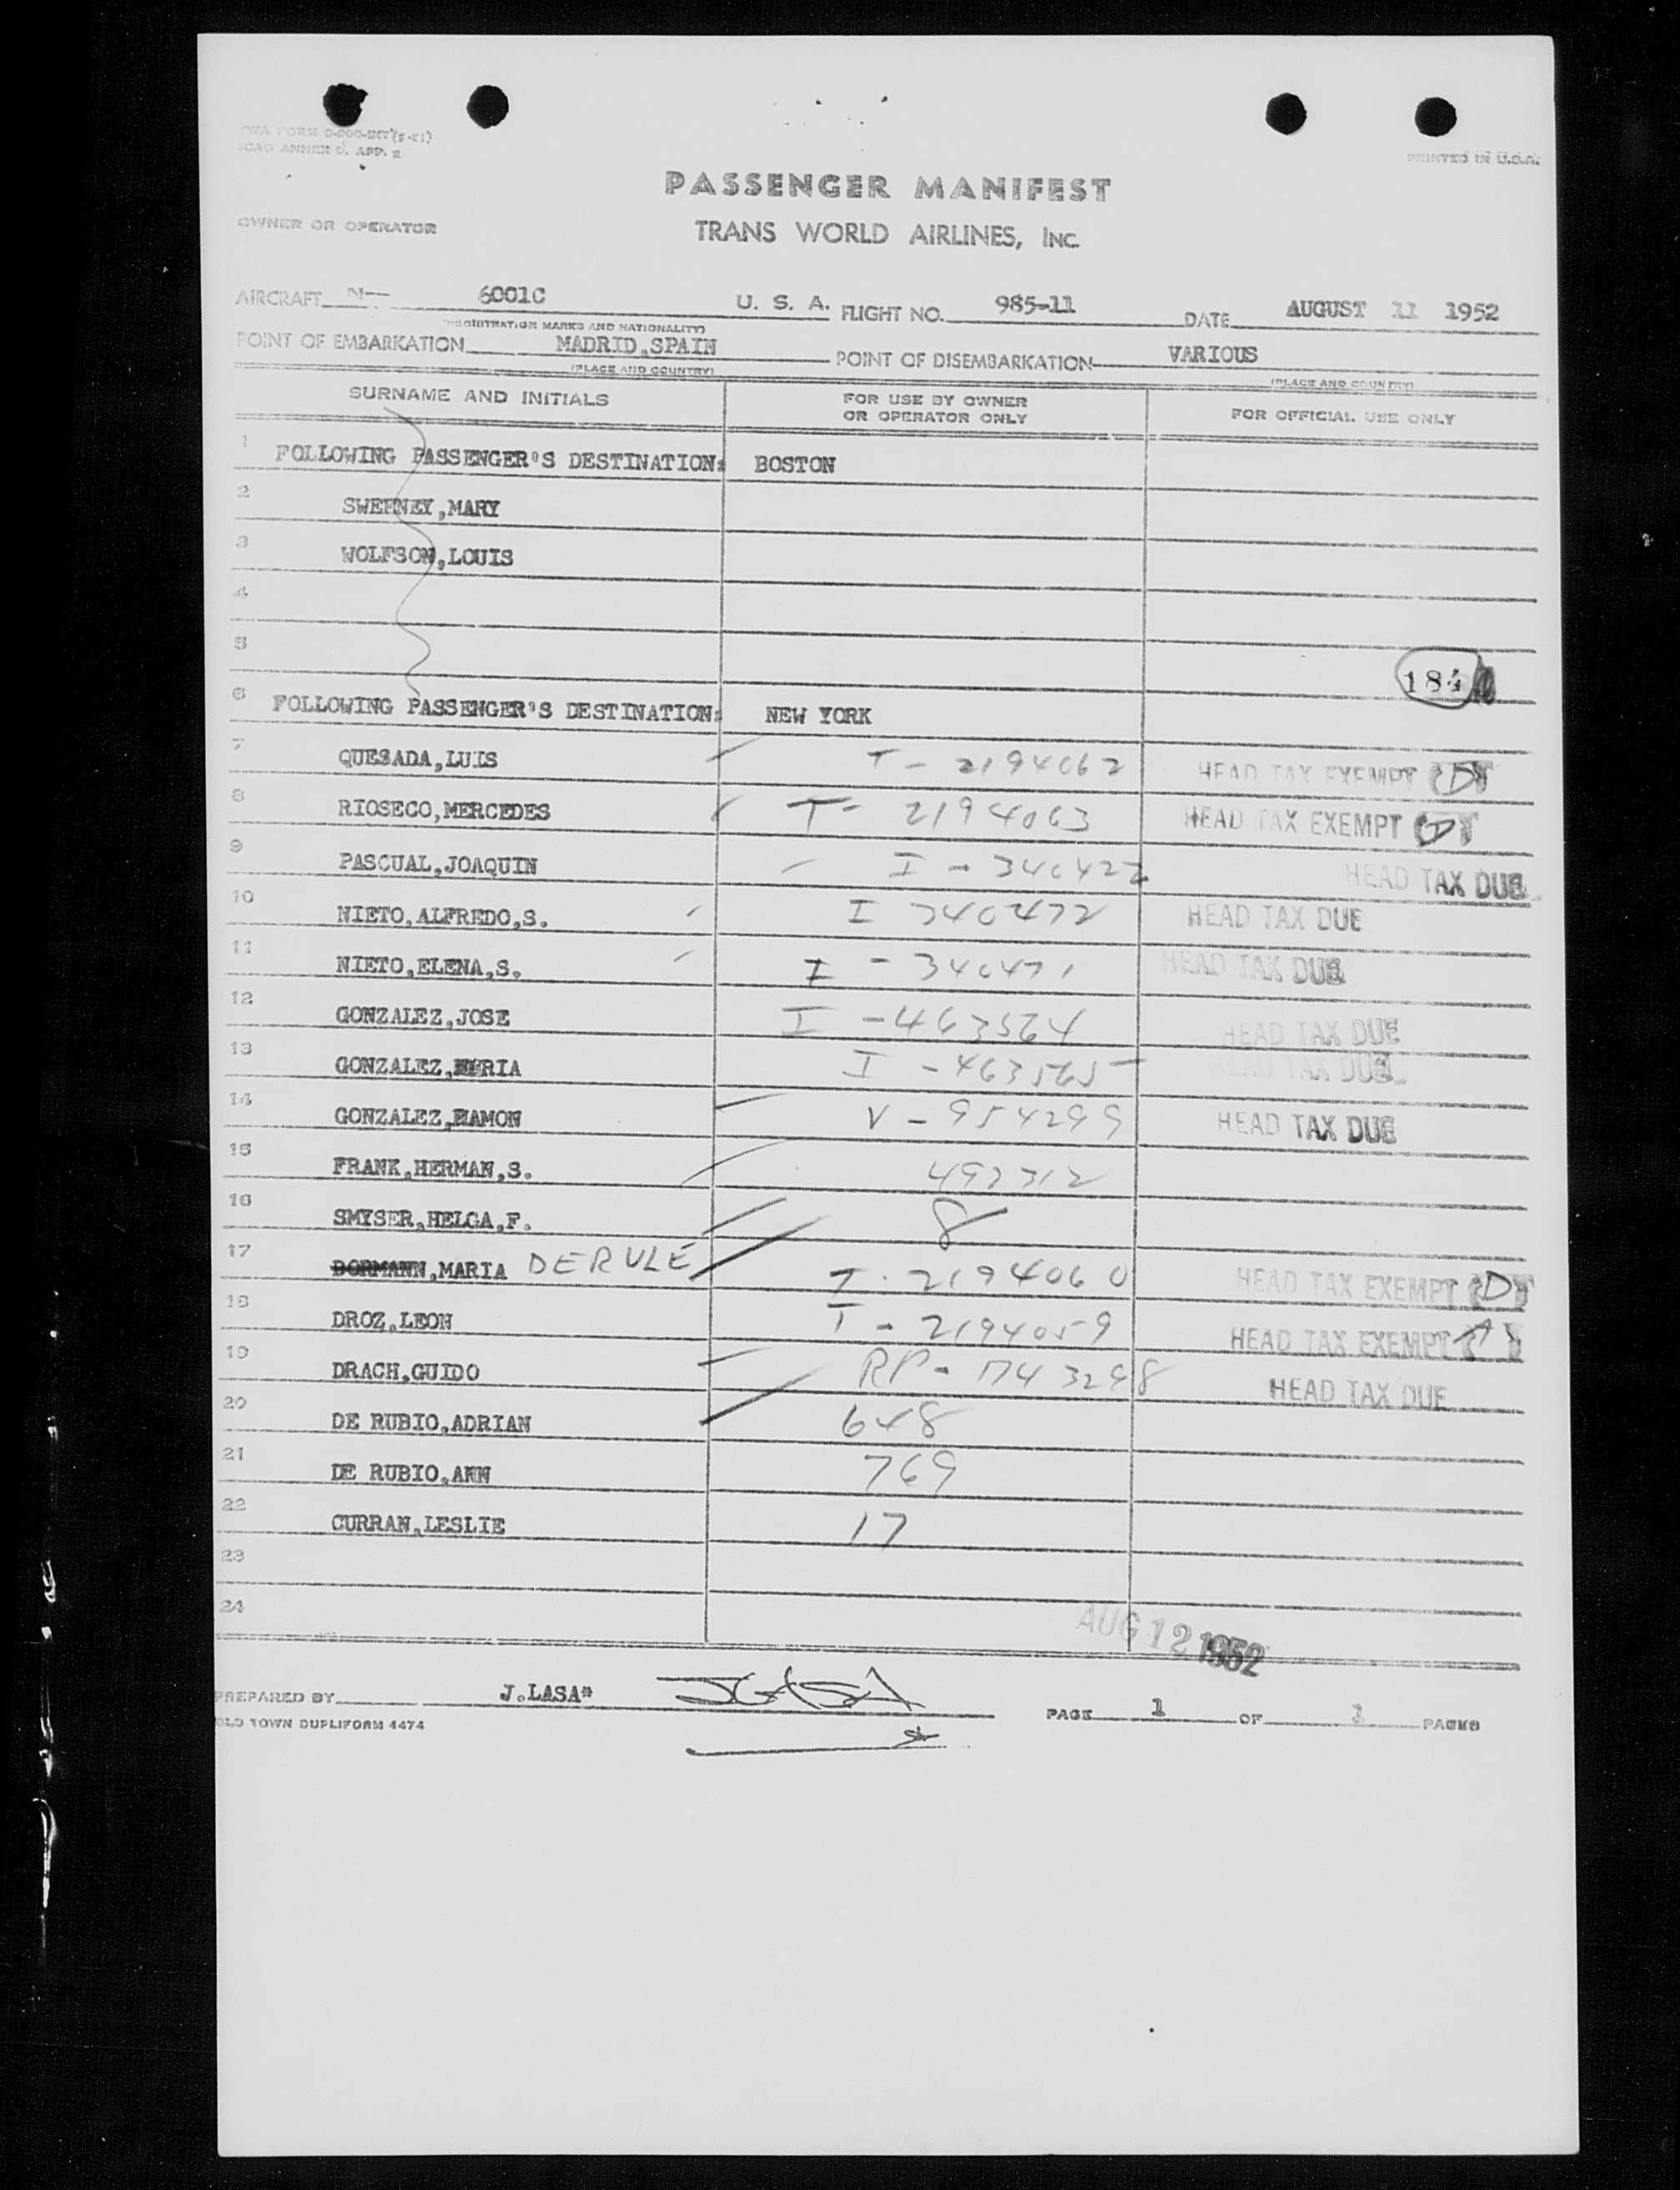 TWA FORM O-200-INT (5-51)
ICAO ANNEX 9, APP. 2
PRINTED IN U.S.A.
PASSENGER MANIFEST
OWNER OR OPERATOR TRANS WORLD AIRLINES, INC.
AIRCRAFT N— 6001C U. S. A. FLIGHT NO. 985-11 DATE AUGUST 11 1952
(REGISTRATION MARKS AND NATIONALITY)
POINT OF EMBARKATION MADRID,SPAIN POINT OF DISEMBARKATION VARIOUS
(PLACE AND COUNTRY) (PLACE AND COUNTRY)
SURNAME AND INITIALS FOR USE BY OWNER OR OPERATOR ONLY FOR OFFICIAL USE ONLY
1 FOLLOWING PASSENGER'S DESTINATION: BOSTON
2 SWEENEY,MARY
3 WOLFSON,LOUIS
4
5
184
6 FOLLOWING PASSENGER'S DESTINATION: NEW YORK
7 QUESADA,LUIS T - 2194062 HEAD TAX EXEMPT
8 RIOSECO,MERCEDES T - 2194063 HEAD TAX EXEMPT
9 PASCUAL,JOAQUIN I - 340422 HEAD TAX DUE
10 NIETO,ALFREDO,S. I 340472 HEAD TAX DUE
11 NIETO,ELENA,S. I - 340471 HEAD TAX DUE
12 GONZALEZ,JOSE I - 463564 HEAD TAX DUE
13 GONZALEZ, RIA I - 463565 HEAD TAX DUE
14 GONZALEZ,RAMON V - 954299 HEAD TAX DUE
15 FRANK,HERMAN,S. 492312
16 SMYSER,HELGA,F. 8
17 DORMANN,MARIA DERULE T - 2194060 HEAD TAX EXEMPT
18 DROZ,LEON T - 2194059 HEAD TAX EXEMPT
19 DRACH,GUIDO RP - 1743298 HEAD TAX DUE
20 DE RUBIO,ADRIAN 648
21 DE RUBIO,ANN 769
22 CURRAN,LESLIE 17
23
24
AUG 12 1952
PREPARED BY J.LASA* JLASA PAGE 1 OF 1 PAGES
OLD TOWN DUPLIFORM 4474